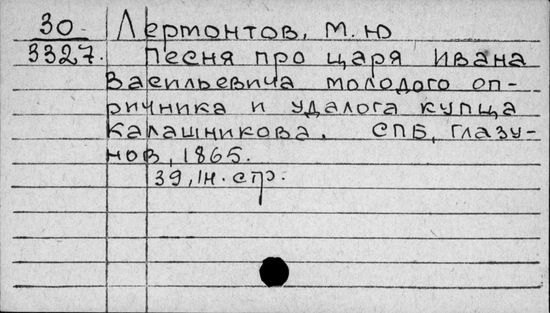 30 Лермонтов, М. Ю
3327. Песня про царя Ивана
Васильевича молодого оп-
ричника и удалога купца
Калашникова. СПБ, Глазу-
нов, 1865.
39, 1н. стр.